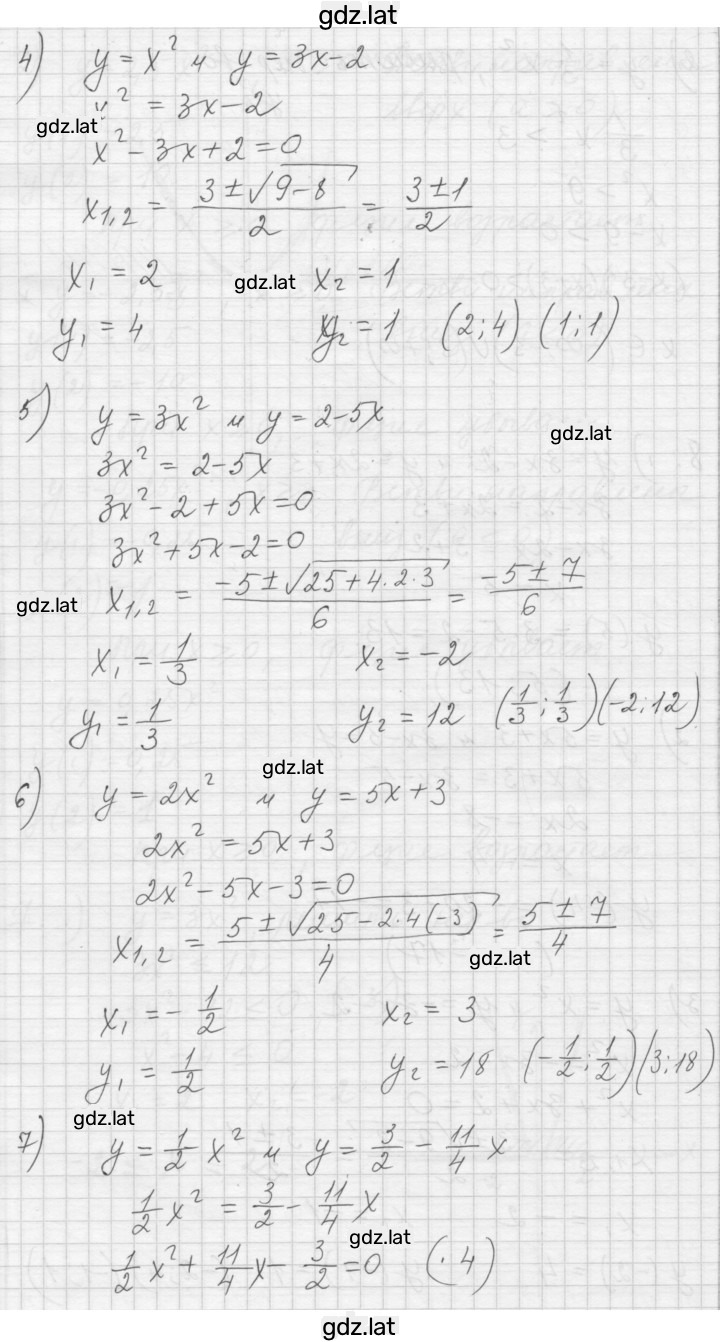 gdz.lat
4) y = x² и y = 3x-2
x² = 3x-2
gdz.lat
x² - 3x + 2 = 0
x₁,₂ = (3 ± √(9-8))/2 = (3 ± 1)/2
x₁ = 2 gdz.lat x₂ = 1
y₁ = 4 y₂ = 1 (2; 4) (1; 1)
5) y = 3x² и y = 2-5x
gdz.lat
3x² = 2-5x
3x² - 2 + 5x = 0
3x² + 5x - 2 = 0
gdz.lat x₁,₂ = (-5 ± √(25 + 4·2·3))/6 = (-5 ± 7)/6
x₁ = 1/3 x₂ = -2
y₁ = 1/3 y₂ = 12 (1/3; 1/3) (-2; 12)
gdz.lat
6) y = 2x² и y = 5x + 3
2x² = 5x + 3
2x² - 5x - 3 = 0
x₁,₂ = (5 ± √(25 - 2·4(-3)))/4 = (5 ± 7)/4
gdz.lat
x₁ = -1/2 x₂ = 3
y₁ = 1/2 y₂ = 18 (-1/2; 1/2) (3; 18)
gdz.lat
7) y = 1/2 x² и y = 3/2 - 11/4 x
1/2 x² = 3/2 - 11/4 x
gdz.lat
1/2 x² + 11/4 x - 3/2 = 0 (· 4)
gdz.lat